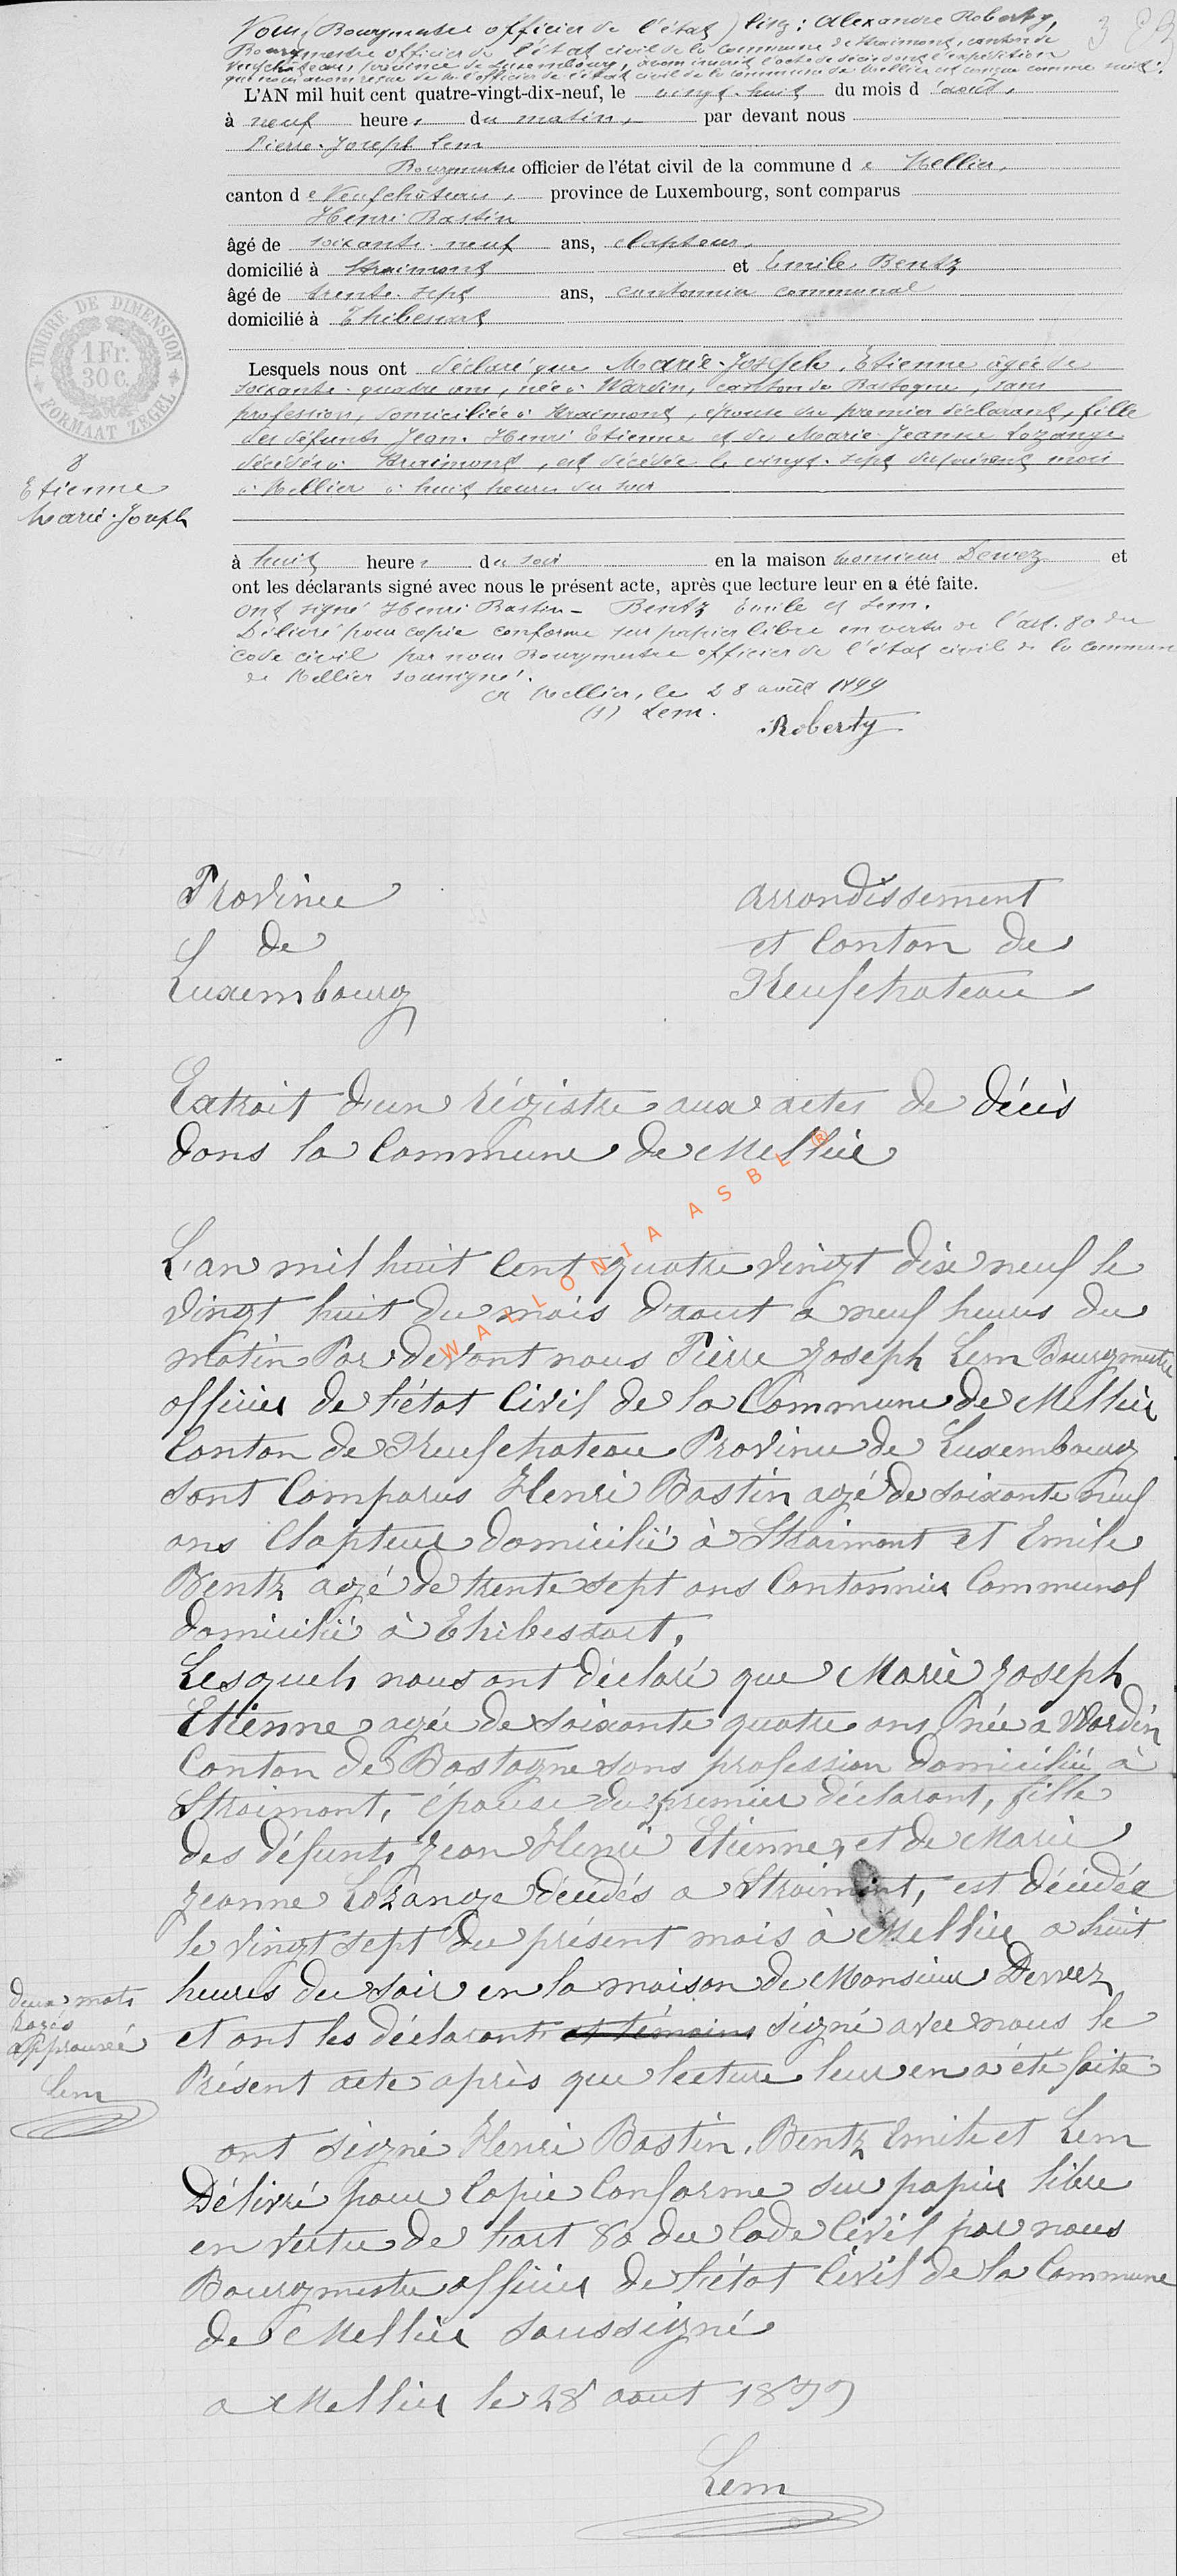 Nous (Bourgmestre officier de l'état) lisez: Alexandre Roberty,
Bourgmestre officier de l'état civil de la commune de Straimont, canton de
Neufchâteau, province de Luxembourg, avons inscrit l'acte de décès dont l'expédition
que nous avons reçue de M. l'officier de l'état civil de la commune de Mellier est conçue comme suit:
L'AN mil huit cent quatre-vingt-dix-neuf, le vingt-huit du mois d'août,
à neuf heures du matin, par devant nous
Pierre-Joseph Lem
Bourgmestre officier de l'état civil de la commune de Mellier,
canton de Neufchâteau, province de Luxembourg, sont comparus
Henri Bastin
âgé de soixante-neuf ans, clapteur,
domicilié à Straimont et Emile Bentz
âgé de trente-sept ans, cantonnier communal
domicilié à Thibessart
Lesquels nous ont déclaré que Marie-Joseph Etienne âgée de
soixante-quatre ans, née à Wardin, canton de Bastogne, sans
profession, domiciliée à Straimont, épouse du premier déclarant, fille
des défunts Jean-Henri Etienne et de Marie-Jeanne Lozange
décédés à Straimont, est décédée le vingt-sept du présent mois
à Mellier à huit heures du soir
TIMBRE DE DIMENSION
1 Fr.
30 C.
FORMAAT ZEGEL
8
Etienne
Marie-Joseph
à huit heures du soir en la maison monsieur Dewez et
ont les déclarants signé avec nous le présent acte, après que lecture leur en a été faite.
Ont signé Henri Bastin - Bentz Emile et Lem.
Délivré pour copie conforme sur papier libre en vertu de l'art. 80 du
code civil par nous Bourgmestre officier de l'état civil de la commune
de Mellier soussigné.
A Mellier, le 28 août 1899
(s) Lem.
Roberty
Province
de
Luxembourg
Arrondissement
et Canton de
Neufchateau
Extrait d'un régistre aux actes de décès
dans la Commune de Mellier
L'an mil huit Cent quatre vingt dix neuf le
vingt huit du mois d'aout a neuf heures du
matin Par devant nous Pierre Joseph Lem Bourgmestre
officier de l'état Civil de la Commune de Mellier
Canton de Neufchateau Province de Luxembourg
sont Comparus Henri Bastin agé de soixante neuf
ans Clapteur domicilié à Straimont et Emile
Bentz agé de trente sept ans Cantonnier Communal
domicilié à Thibessart,
Lesquels nous ont déclaré que Marie Joseph
Etienne agée de soixante quatre ans née a Wardin
Canton de Bastogne sans profession domiciliée à
Straimont, épouse du premier déclarant, fille
des défunts Jean Henri Etienne, et de Marie
Jeanne Lozange décédés a Straimont, est décédée
le vingt sept du présent mois à Mellier a huit
heures du soir en la maison de Monsieur Dewez
et ont les déclarants et témoins signé avec nous le
Présent acte après que lecture leur en a été faite
deux mots
rayés
approuvé
Lem
ont signé Henri Bastin, Bentz Emile et Lem
Délivré pour Copie Conforme sur papier libre
en vertu de l'art 80 du Code Civil par nous
Bourgmestre officier de l'état Civil de la Commune
de Mellier soussigné
a Mellier le 28 aout 1899
Lem
WALLONIA ASBL ®